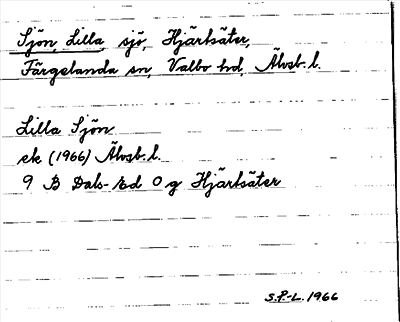 Sjön, Lilla, sjö, Hjärtsäter,
Färgelanda sn, Valbo hd, Älvsb. l.
Lilla Sjön
ek (1966) Älvsb. l.
9 B Dals-Ed 0 g Hjärtsäter
S.P.-L. 1966